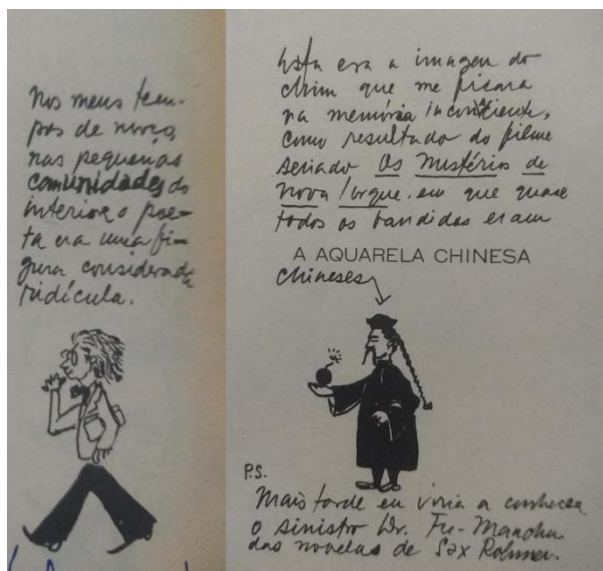 Nos meus tem-
pos de moço,
nas pequenas
comunidades do
interior o poe-
ta era uma fi-
gura considerada
ridícula.
Esta era a imagem do
chim que me ficara
na memória inconsciente,
como resultado do filme
seriado Os Mistérios de
Nova Iorque, em que quase
todos os bandidos eram
A AQUARELA CHINESA
chineses
P.S.
Mais tarde eu viria a conhecer
o sinistro Dr. Fu-Manchu
das novelas de Sax Rohmer.